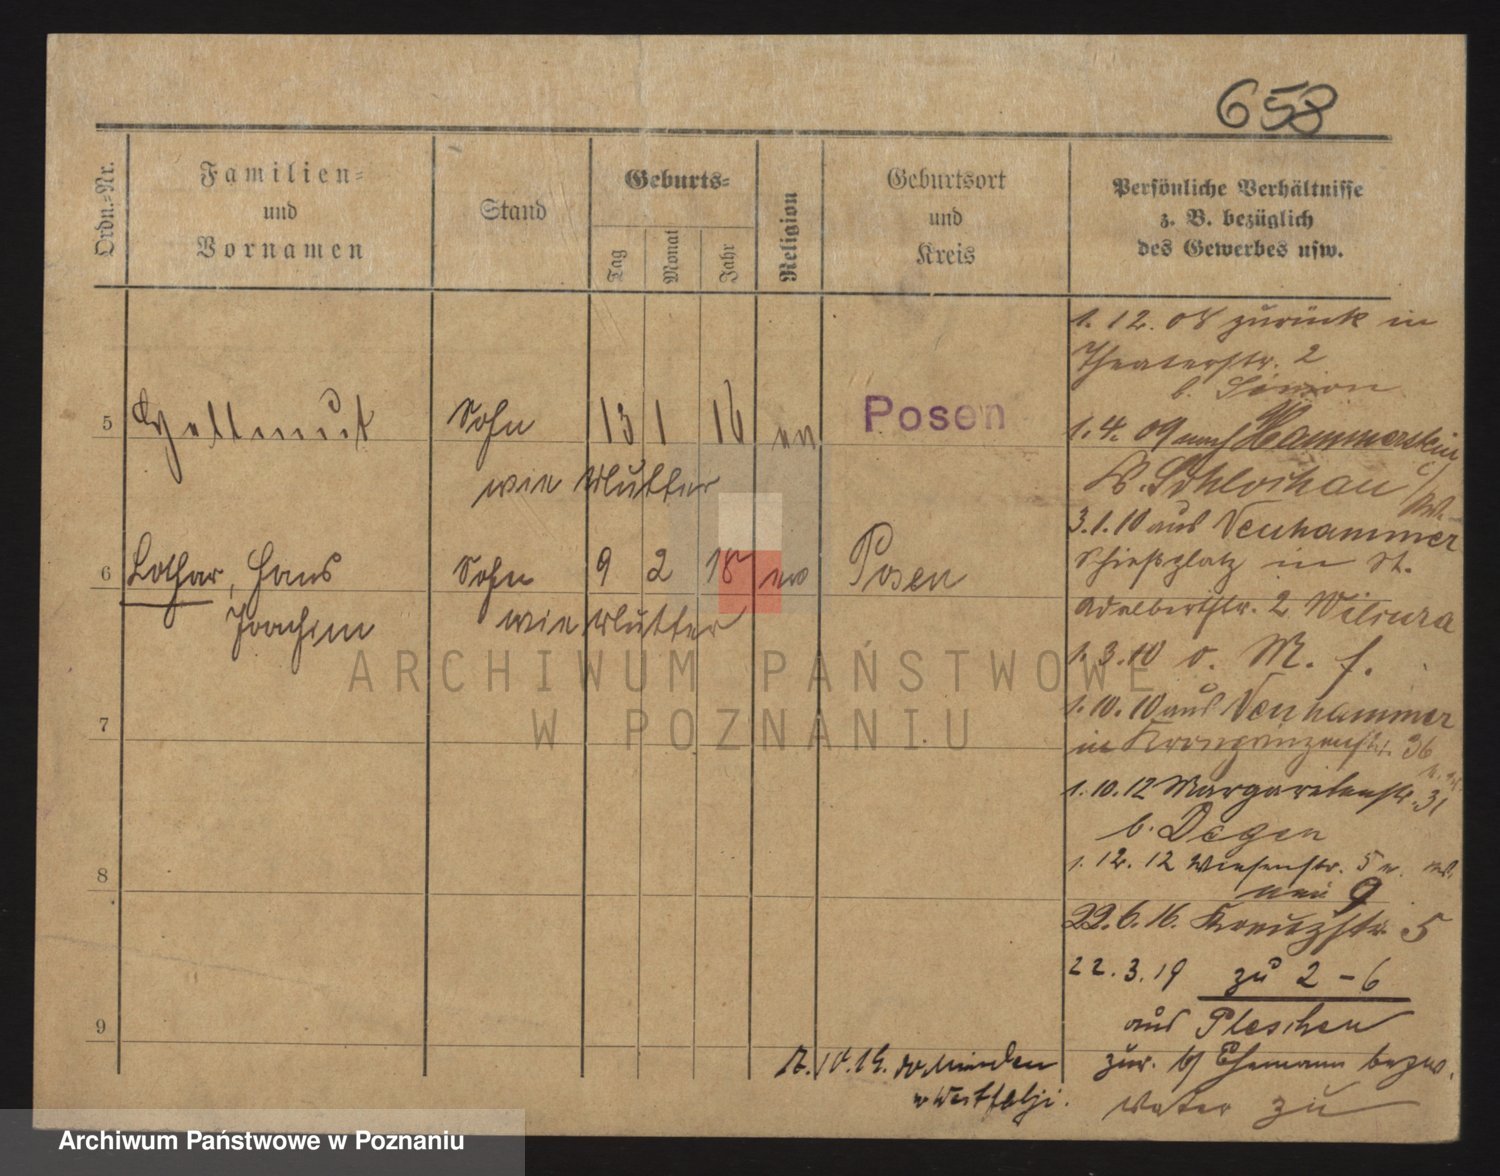 658
Ordn.-Nr.
Familien-
und
Vornamen
Stand
Geburts-
Tag
Monat
Jahr
Religion
Geburtsort
und
Kreis
Persönliche Verhältnisse
z. B. bezüglich
des Gewerbes usw.
5
Hellmut
Sohn
13
1
16
ev
Posen
wie Mutter
6
Lothar, Hans
Joachim
Sohn
9
2
18
ev
Posen
wie Mutter
7
8
9
1. 12. 08 zurück in
Theaterstr. 2
b. Simon
1. 4. 09 nach Hammerstein
K. Schlochau
3.1.10 aus Neuhammer
Schießplatz in St.
Adalbertstr. 2
1. 3. 10 v. M. f.
1. 10. 10 aus Neuhammer
in Kronprinzenstr. 36
1. 10. 12 Margaretenstr. 31
b. Degen
1. 12. 12 Wiesenstr. 5
neu 9
22. 6. 16. Kreuzstr. 5
22. 3. 19 zu 2 - 6
aus Pleschen
zur. b/ Ehemann bezw.
Vater zu
10. 19. Minden
Westfal
ARCHIWUM PAŃSTWOWE
W POZNANIU
Archiwum Państwowe w Poznaniu